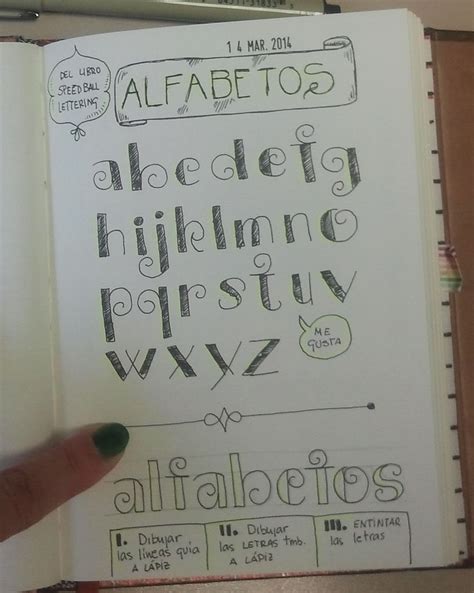 14 MAR. 2014
DEL LIBRO
SPEEDBALL
LETTERING
ALFABETOS
abcdefg
hijklmno
pqrstuv
wxyz
ME
GUSTA
alfabetos
I. Dibujar
las líneas guía
A LÁPIZ
II. Dibujar
las LETRAS tmb.
A LÁPIZ
III. ENTINTAR
las letras